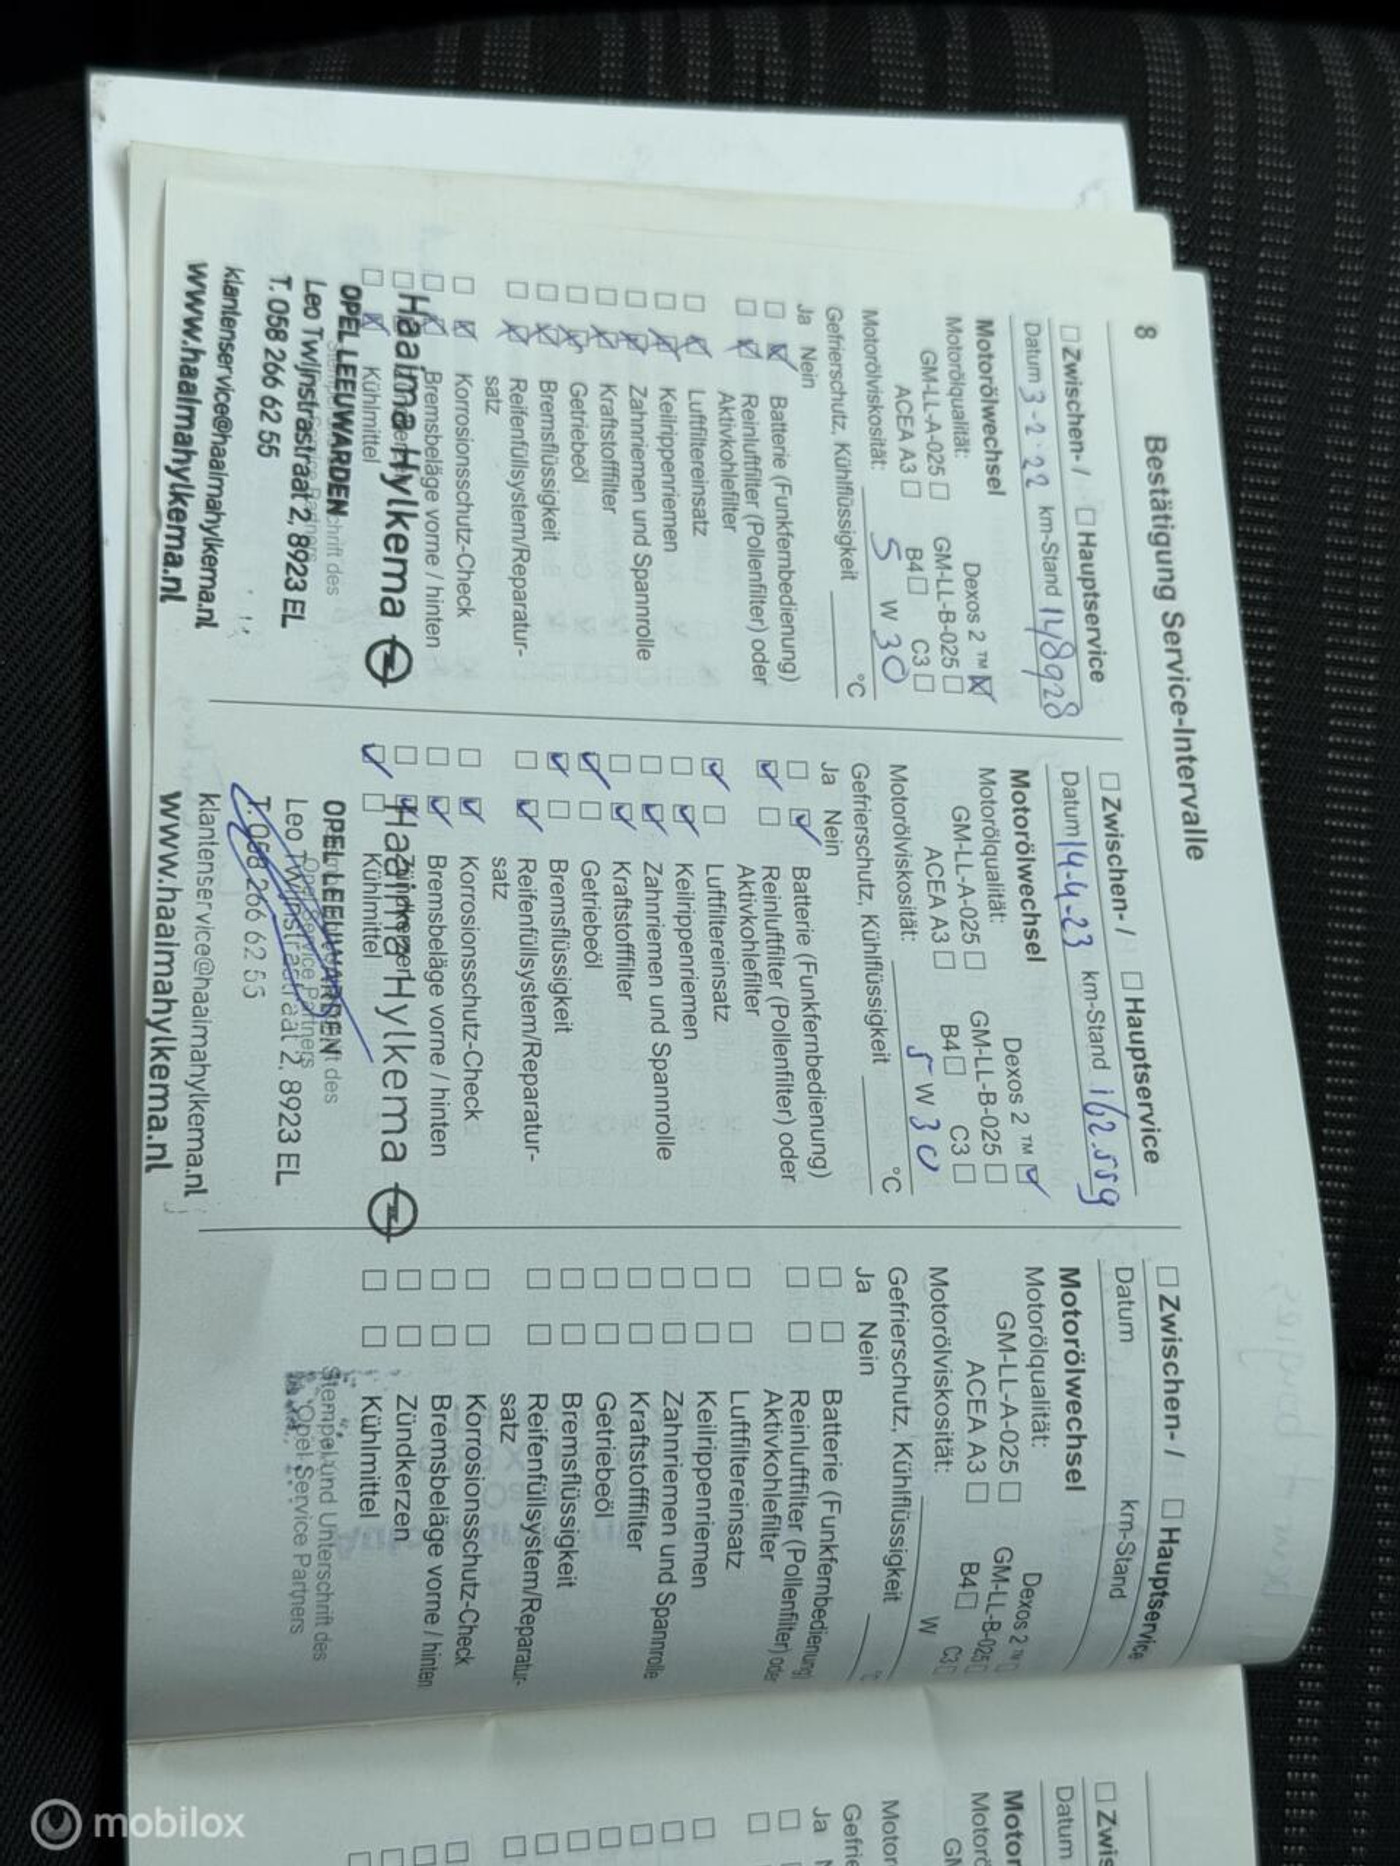 8 Bestätigung Service-Intervalle
☐ Zwischen- / ☐ Hauptservice
Datum 3-2-22 km-Stand 148928
Motorölwechsel
Motorölqualität: Dexos 2 ™ ☒
GM-LL-A-025 ☐ GM-LL-B-025 ☐
ACEA A3 ☐ B4 ☐ C3 ☐
Motorölviskosität: 5 W 30
Gefrierschutz, Kühlflüssigkeit °C
Ja Nein
☐ ☒ Batterie (Funkfernbedienung)
☐ ☒ Reinluftfilter (Pollenfilter) oder
Aktivkohlefilter
☐ ☒ Luftfiltereinsatz
☐ ☒ Keilrippenriemen
☐ ☒ Zahnriemen und Spannrolle
☐ ☒ Kraftstofffilter
☐ ☒ Getriebeöl
☐ ☒ Bremsflüssigkeit
☐ ☒ Reifenfüllsystem/Reparatur-
satz
☐ ☒ Korrosionsschutz-Check
☐ ☒ Bremsbeläge vorne / hinten
Haaima Hylkema
☐ ☒ Kühlmittel
OPEL LEEUWARDEN
Leo Twijnstraat 2, 8923 EL
T. 058 266 62 55
klantenservice@haaimahylkema.nl
www.haaimahylkema.nl
☐ Zwischen- / ☐ Hauptservice
Datum 14-4-23 km-Stand 162.559
Motorölwechsel
Motorölqualität: Dexos 2 ™ ☑
GM-LL-A-025 ☐ GM-LL-B-025 ☐
ACEA A3 ☐ B4 ☐ C3 ☐
Motorölviskosität: 5 W 30
Gefrierschutz, Kühlflüssigkeit °C
Ja Nein
☐ ☑ Batterie (Funkfernbedienung)
☑ ☐ Reinluftfilter (Pollenfilter) oder
Aktivkohlefilter
☑ ☐ Luftfiltereinsatz
☐ ☑ Keilrippenriemen
☐ ☑ Zahnriemen und Spannrolle
☐ ☑ Kraftstofffilter
☑ ☐ Getriebeöl
☑ ☐ Bremsflüssigkeit
☐ ☑ Reifenfüllsystem/Reparatur-
satz
☐ ☑ Korrosionsschutz-Check
☐ ☑ Bremsbeläge vorne / hinten
☐ ☑ Zündkerzen
Haaima Hylkema
☑ ☐ Kühlmittel
OPEL LEEUWARDEN
Leo Twijnstraat 2, 8923 EL
T. 058 266 62 55
klantenservice@haaimahylkema.nl
www.haaimahylkema.nl
☐ Zwischen- / ☐ Hauptservice
Datum km-Stand
Motorölwechsel
Motorölqualität: Dexos 2 ™ ☐
GM-LL-A-025 ☐ GM-LL-B-025 ☐
ACEA A3 ☐ B4 ☐ C3 ☐
Motorölviskosität: W
Gefrierschutz, Kühlflüssigkeit
Ja Nein
☐ ☐ Batterie (Funkfernbedienung)
☐ ☐ Reinluftfilter (Pollenfilter) oder
Aktivkohlefilter
☐ ☐ Luftfiltereinsatz
☐ ☐ Keilrippenriemen
☐ ☐ Zahnriemen und Spannrolle
☐ ☐ Kraftstofffilter
☐ ☐ Getriebeöl
☐ ☐ Bremsflüssigkeit
☐ ☐ Reifenfüllsystem/Reparatur-
satz
☐ ☐ Korrosionsschutz-Check
☐ ☐ Bremsbeläge vorne / hinten
☐ ☐ Zündkerzen
☐ ☐ Kühlmittel
Stempel und Unterschrift des
Opel Service Partners
☐ Zwis
Datum
Motor
Motorö
GM
Motor
Gefrie
Ja
mobilox